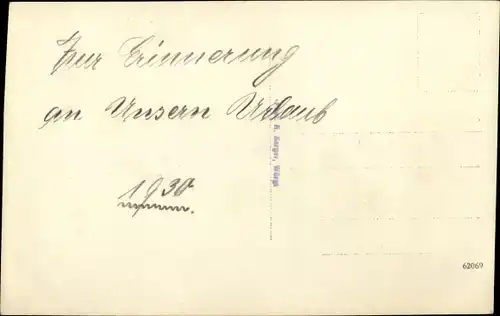 Zur Erinnerung
an Unsern Urlaub
1930
62069